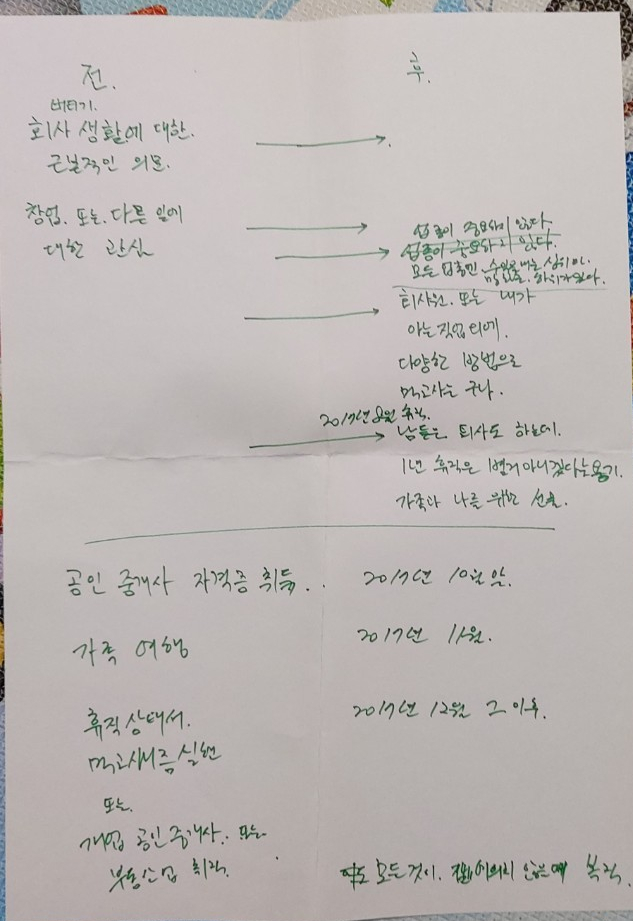 전. 후.
버티기.
회사 생활에 대한.
근본적인 의문.
창업. 또는. 다른 일에
대한 관심
업종이 중요하지 않다
업종이 중요하지 않다.
모든 업종엔
회사원. 또는 내가
아는 직업 외에.
다양한 방법으로
먹고사는 구나.
2017년 8월 휴직.
남들은 퇴사도 하는데.
1년 휴직은 별거 아니겠다는 용기.
가족과 나를 위한 선물.
공인 중개사 자격증 취득. 2017년 10월 말.
가족 여행 2017년 11월.
휴직 상태서. 2017년 12월 그 이후.
먹고사니즘 실현
또는.
개업 공인중개사. 또는
부동산업 취직. 모든것이. 않을때 복직.